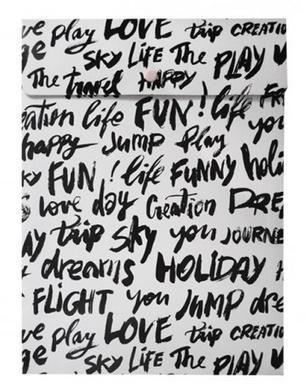 ve play LOVE trip CREATIO
ge SKY LIFE The PLAY
The travel HAPPY
eation life FUN! life FR
happy JUMP Play you
KY FUN! life FUNNY holi
S love day Creation DRE
AY trip SKY you JOURNE
dreams HOLIDAY
FLIGHT you JUMP dre
ve play LOVE trip CREATIO
ge SKY LIFE The PLAY